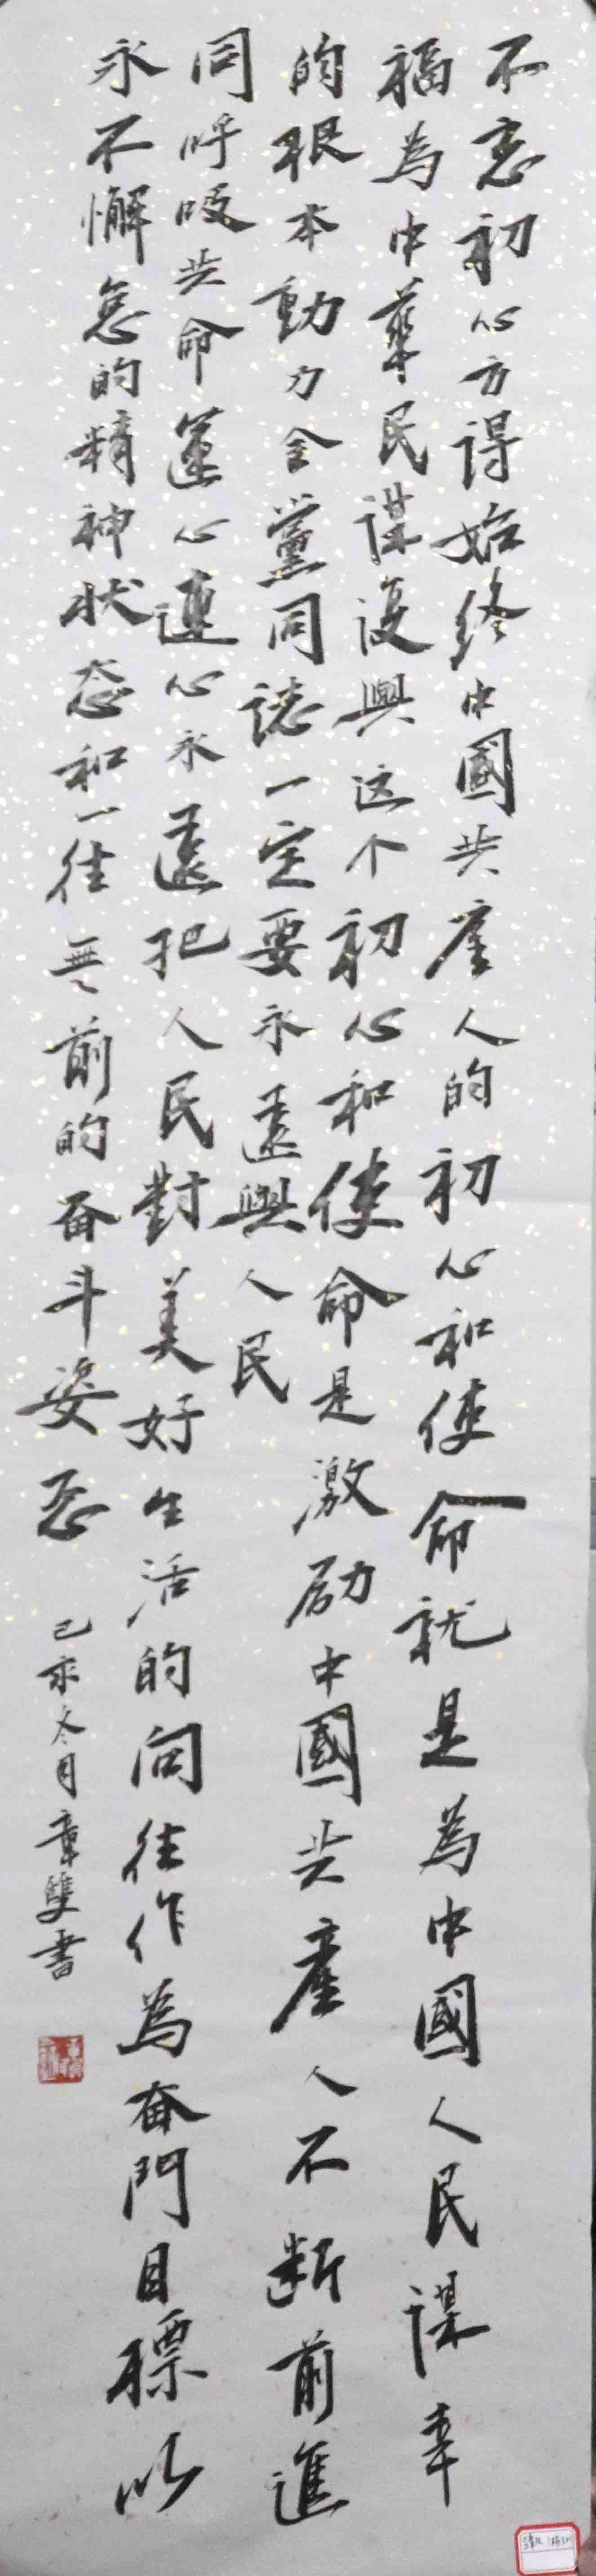 不忘初心方得始终中國共產人的初心和使命就是為中國人民謀幸
福為中華民謀復興这个初心和使命是激励中國共產人不断前進
的根本動力全黨同誌一定要永遠與人民
同呼吸共命運心連心永遠把人民對美好生活的向往作為奋門目標以
永不懈怠的精神状态和一往無前的奋斗姿态
己亥冬月章雙書